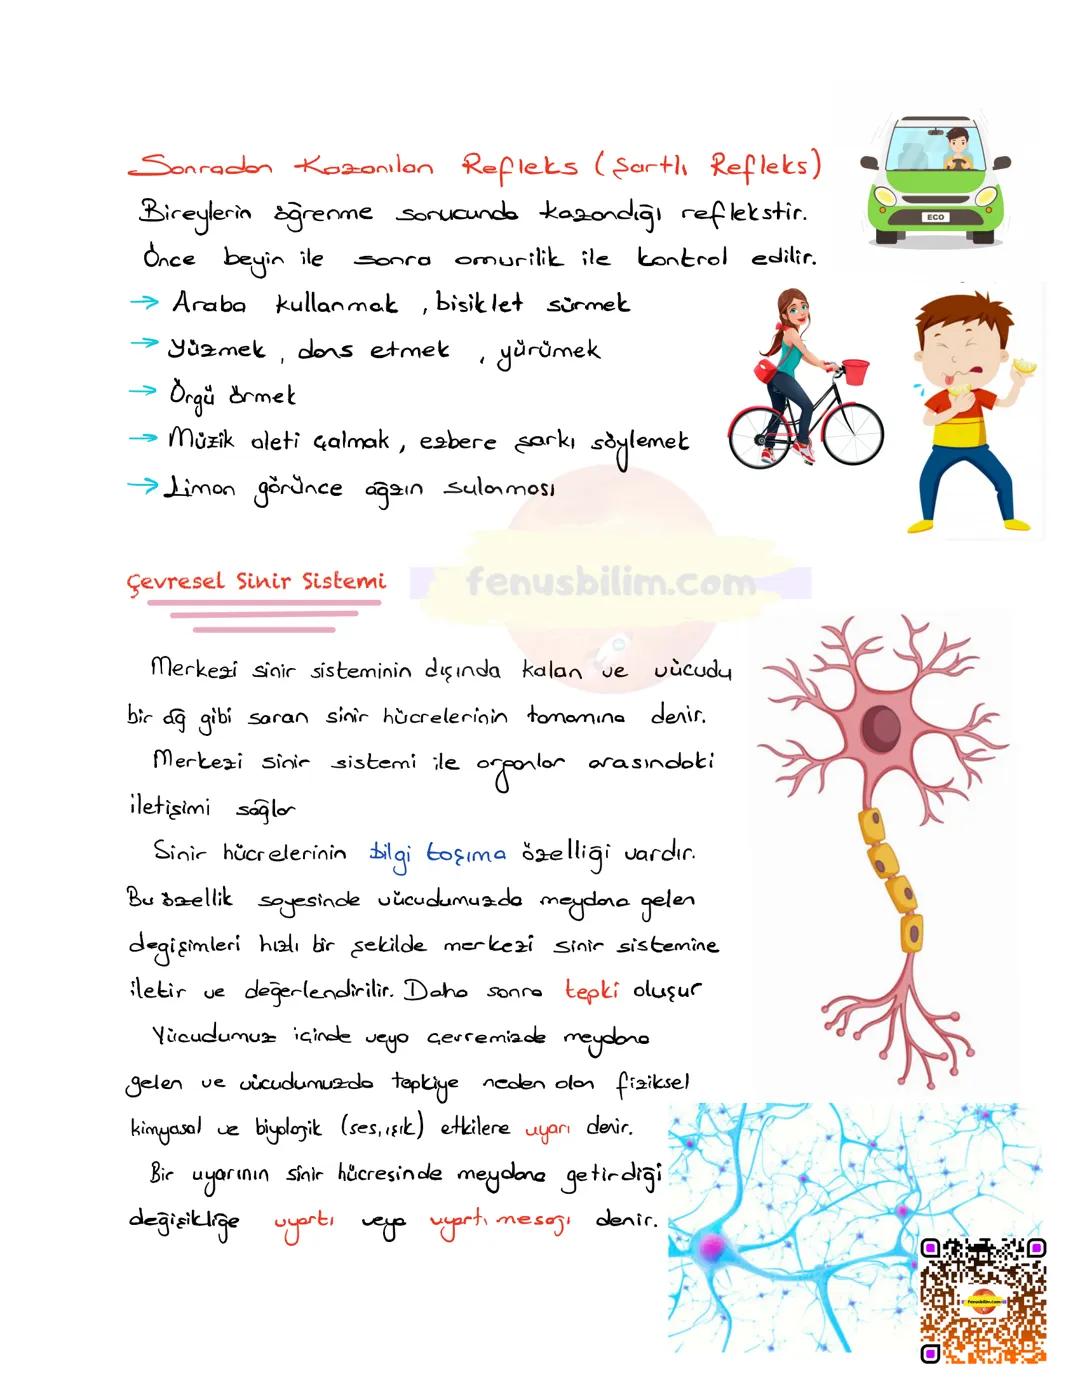 Sonradan Kazanılan Refleks (Şartlı Refleks)
ECO
Bireylerin öğrenme sonucunda kazandığı reflekstir.
Önce beyin ile sonra omurilik ile kontrol edilir.
→ Araba kullanmak, bisiklet sürmek
→ Yüzmek, dans etmek, yürümek
→ Örgü örmek
→ Müzik aleti çalmak, ezbere şarkı söylemek
→ Limon görünce ağzın sulanması
Çevresel Sinir Sistemi
fenusbilim.com
Merkezi sinir sisteminin dışında kalan ve vücudu
bir ağ gibi saran sinir hücrelerinin tamamına denir.
Merkezi sinir sistemi ile organlar arasındaki
iletişimi sağlar
Sinir hücrelerinin bilgi taşıma özelliği vardır.
Bu özellik sayesinde vücudumuzda meydana gelen
degişimleri hızlı bir şekilde merkezi sinir sistemine
iletir ve değerlendirilir. Daha sonra tepki oluşur
Vücudumuz içinde veya çevremizde meydana
gelen ve vücudumuzda tepkiye neden olan fiziksel
kimyasal ve biyolojik (ses, ışık) etkilere uyarı denir.
Bir uyarının sinir hücresinde meydana getirdiği
değişikliğe uyartı veya uyartı mesajı denir.
fenusbilim.com